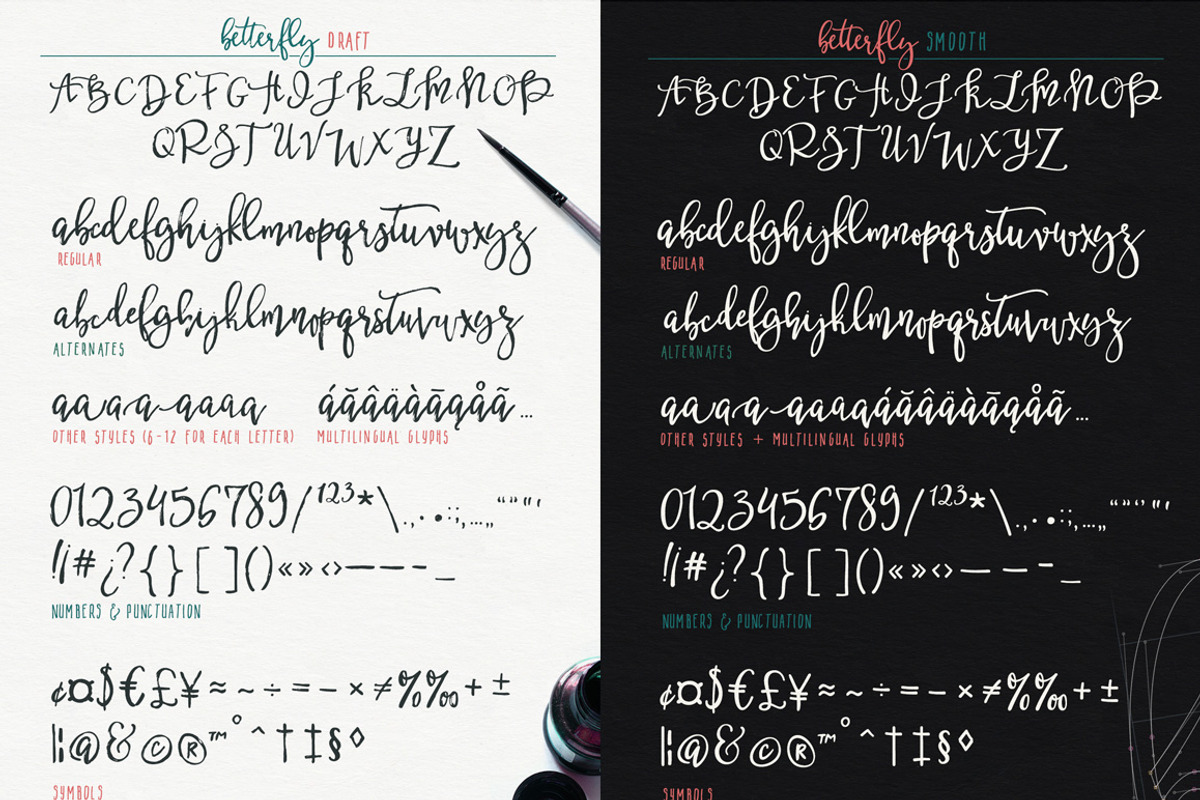 betterfly DRAFT
ABCDEFGHIJKLMNOP
QRSTUVWXYZ
abcdefghijklmnopqrstuvwxyz
REGULAR
abcdefghijklmnopqrstuvwxyz
ALTERNATES
aaaaaaaa áăâäàāąåã...
OTHER STYLES (6-12 FOR EACH LETTER) MULTILINGUAL GLYPHS
0123456789/¹²³*\.,·•:;,...„ “”"'
!¡#¿?{}[]()«»‹›—–-_
NUMBERS & PUNCTUATION
¢¤$€£¥≈~÷=−×≠%‰+±
|¦@&©®™°^†‡§◊
SYMBOLS
betterfly SMOOTH
ABCDEFGHIJKLMNOP
QRSTUVWXYZ
abcdefghijklmnopqrstuvwxyz
REGULAR
abcdefghijklmnopqrstuvwxyz
ALTERNATES
aaaaaaaaáăâäàāąåã...
OTHER STYLES + MULTILINGUAL GLYPHS
0123456789/¹²³*\.,·•:;,...„ “”‘’"'
!¡#¿?{}[]()«»‹›—–-_
NUMBERS & PUNCTUATION
¢¤$€£¥≈~÷=−×≠%‰+±
|¦@&©®™°^†‡§◊
SYMBOLS